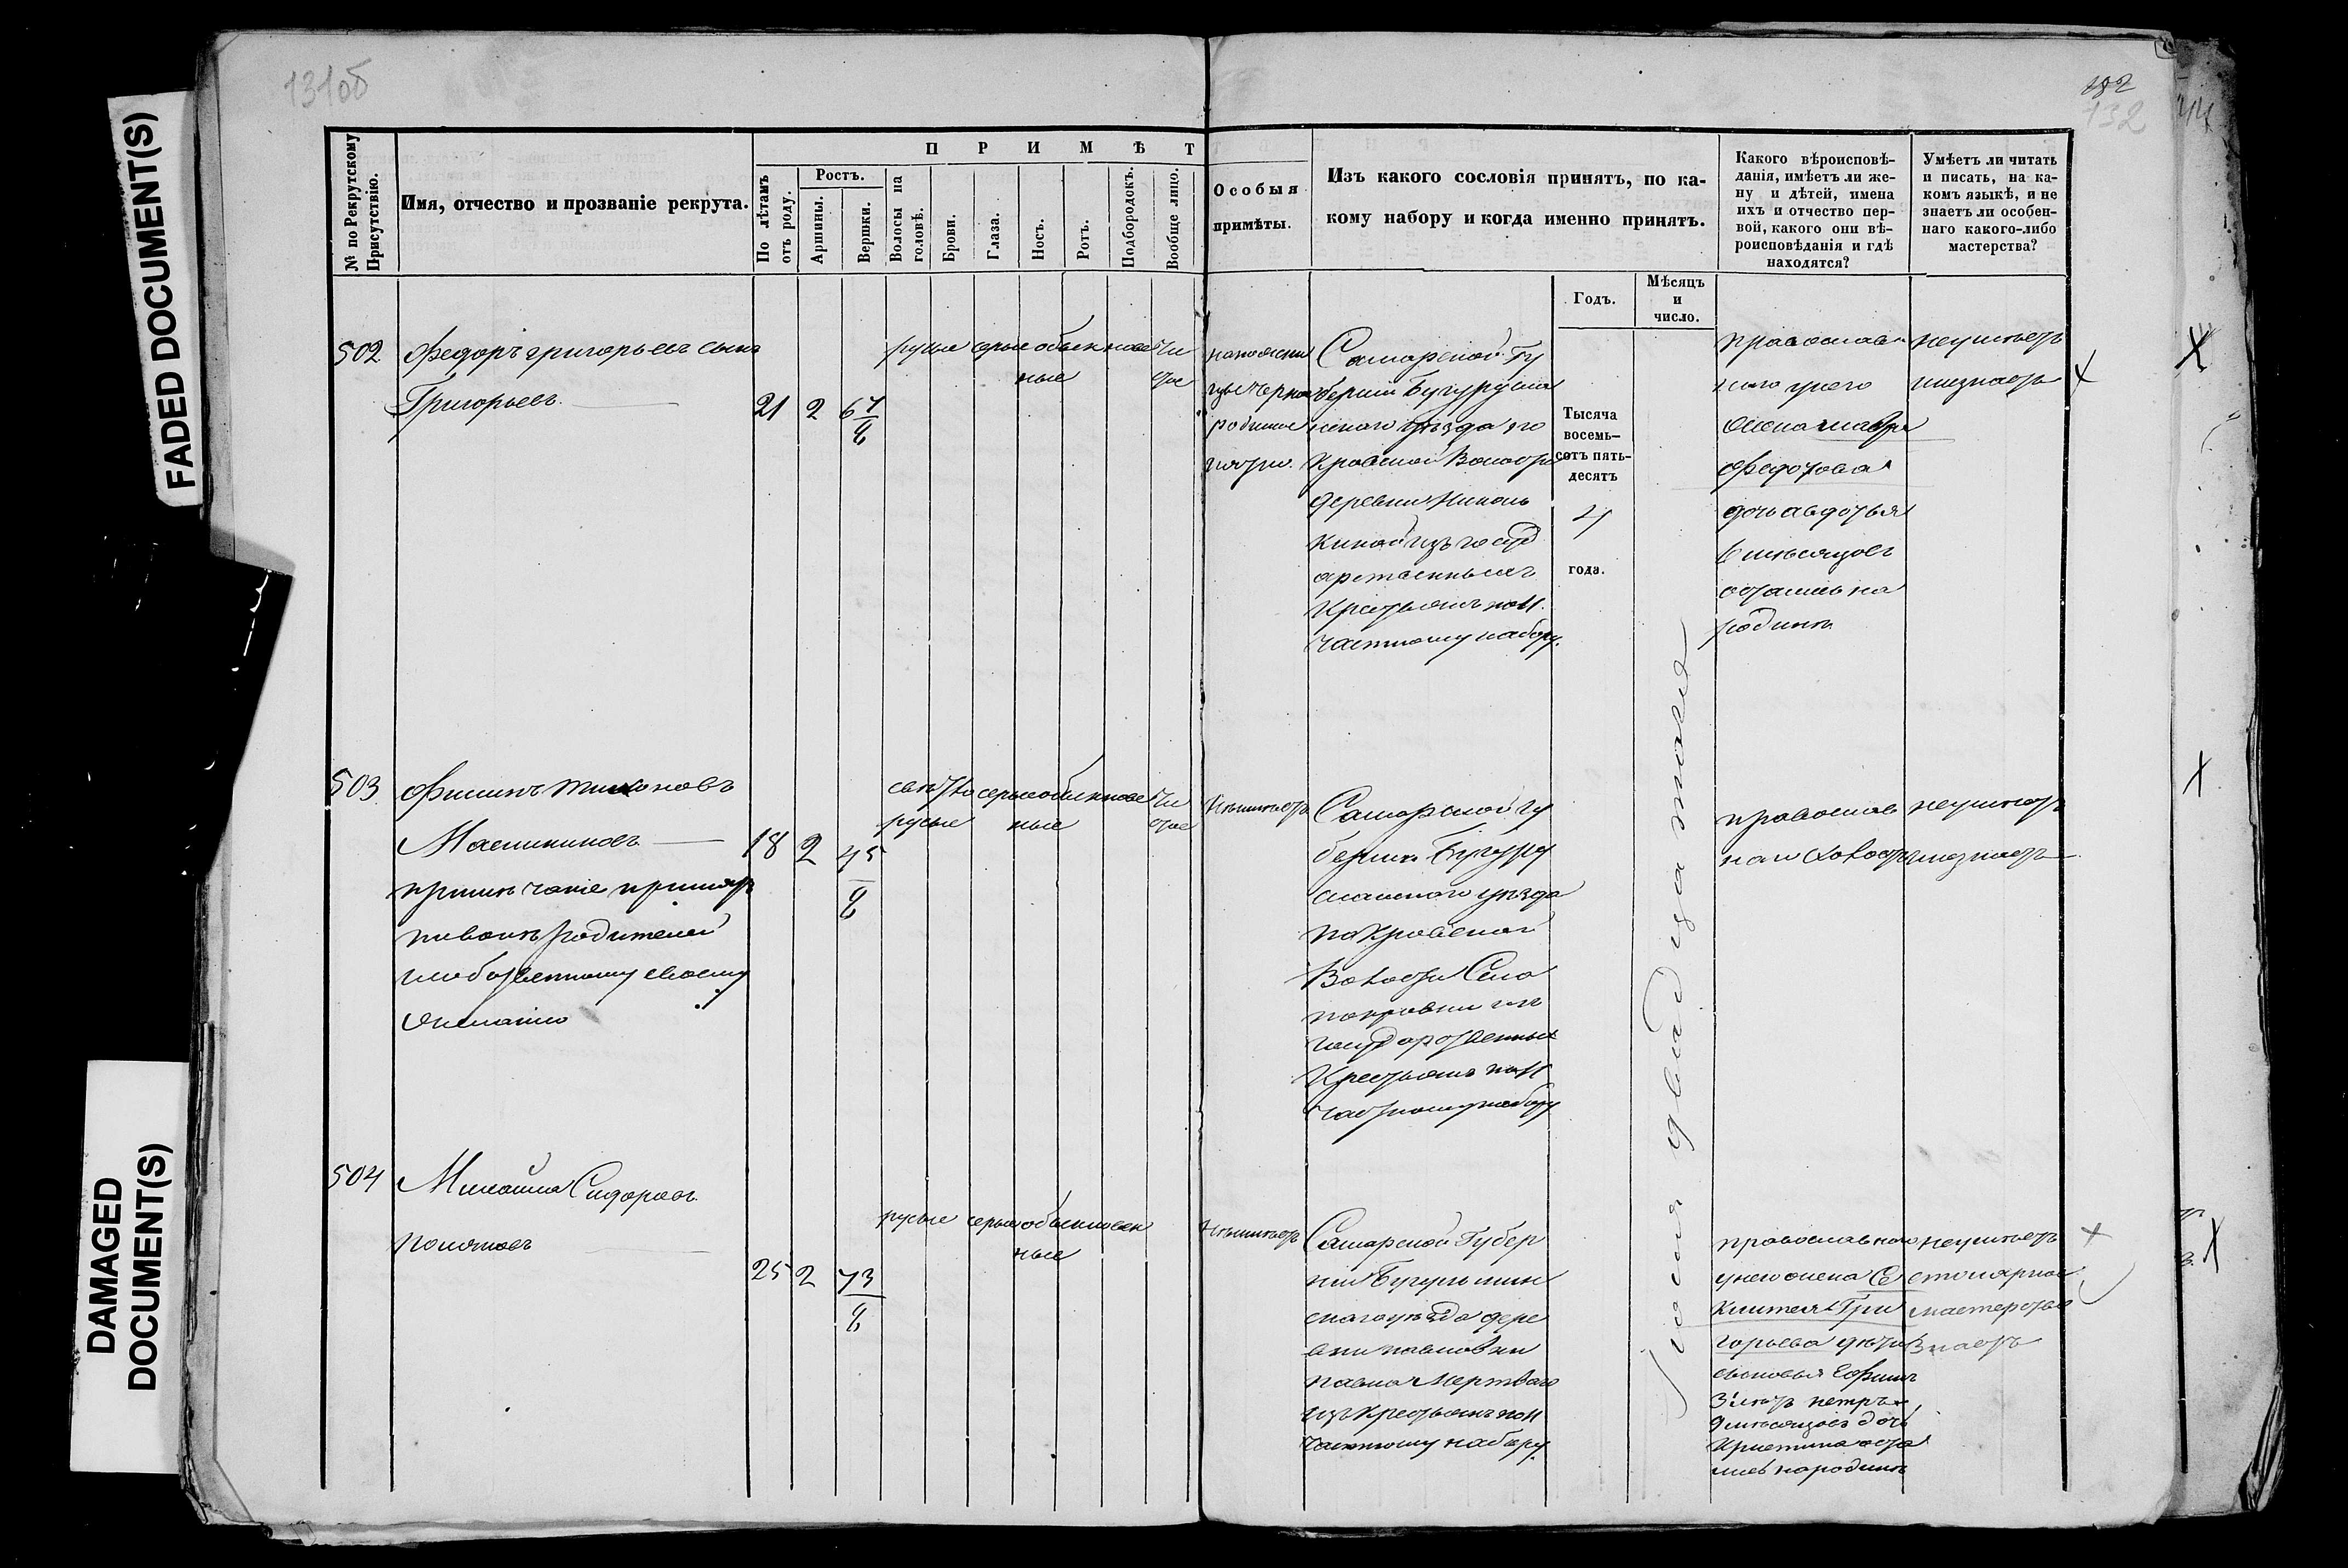 FADED DOCUMENT(S)
DAMAGED
DOCUMENT(S)
131об
132
№ по Рекрутскому
Присутствію.
Имя, отчество и прозваніе рекрута.
П Р И М Ѣ Т
По лѣтамъ
отъ роду.
Ростъ.
Аршины.
Вершки.
Волосы на
головѣ.
Брови.
Глаза.
Носъ.
Ротъ.
Подбородокъ.
Вообще лицо.
Особыя
примѣты.
Изъ какого сословія принятъ, по ка-
кому набору и когда именно принятъ.
Годъ.
Мѣсяцъ
и
число.
Какого вѣроисповѣ-
данія, имѣетъ ли же-
ну и дѣтей, имена
ихъ и отчество пер-
вой, какого они вѣ-
роисповѣданія и гдѣ
находятся?
Умѣетъ ли читать
и писать, на ка-
комъ языкѣ, и не
знаетъ ли особен-
наго какого-либо
мастерства?
502
Федоръ григорьевъ сынъ
Григорьевъ
21 2 6 7/8
русые серые обыкновен
ные
чи
стое
черная
родимое
Самарской Гу
берніи Бугурусла
нскаго уѣзда по
кровской Волости
деревни Николь
киной изъ госуд
арственныхъ
Крестьянъ по 11
частному набору
Тысяча
восемь-
сотъ пять-
десятъ
4
года.
Іюля двадцатаго
православ
наго у него
жена мавра
Федотова
дочь авдотья
6 мѣсяцовъ
остались на
родинѣ
неумѣетъ
и незнаетъ
503
Филипъ тихоновъ
примѣчаніе принятъ
родителей
своему
желанію
18 2 4 5/8
свѣтло серые обыкновен
русые ные
чи
стое
Неимѣетъ
Самарской гу
берніи Бугуру
сланскаго уѣзда
покровской
Волости Села
покровки изъ
государственныхъ
Крестьянъ по 11
частному набору
православ
наго холостъ
неумѣетъ
и незнаетъ
504
Михаила Сидоровъ
25 2 7 3/8
русые серые обыкновен
ные
Неимѣетъ
Самарской Губер
ніи Бугульмин
скаго уѣзда дере
вни павловки
павла Мертваго
изъ крестьянъ по 11
частному набору
православнаго
у него жена Се
клитея Гри
горьева дѣти
сыновья Ефимъ
3 лѣтъ петръ
9 мѣсяцовъ дочь
Кристина оста
лись народинѣ
неумѣетъ
столярное
мастерство
знаетъ